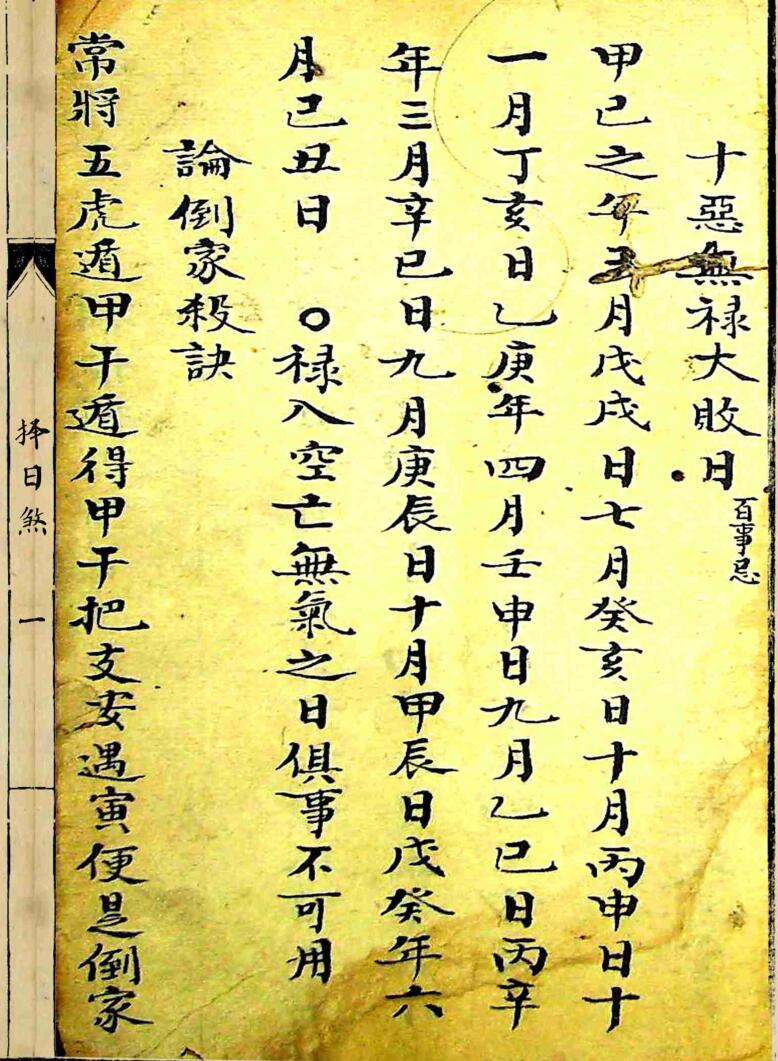 十惡無禄大敗日 百事忌
甲己之年三月戊戌日七月癸亥日十月丙申日十
一月丁亥日乙庚年四月壬申日九月乙巳日丙辛
年三月辛巳日九月庚辰日十月甲辰日戊癸年六
月己丑日 ○禄入空亡無氣之日俱事不可用
論倒家殺訣
常將五虎遁甲干遁得甲干把支安遇寅便是倒家
择日煞 一